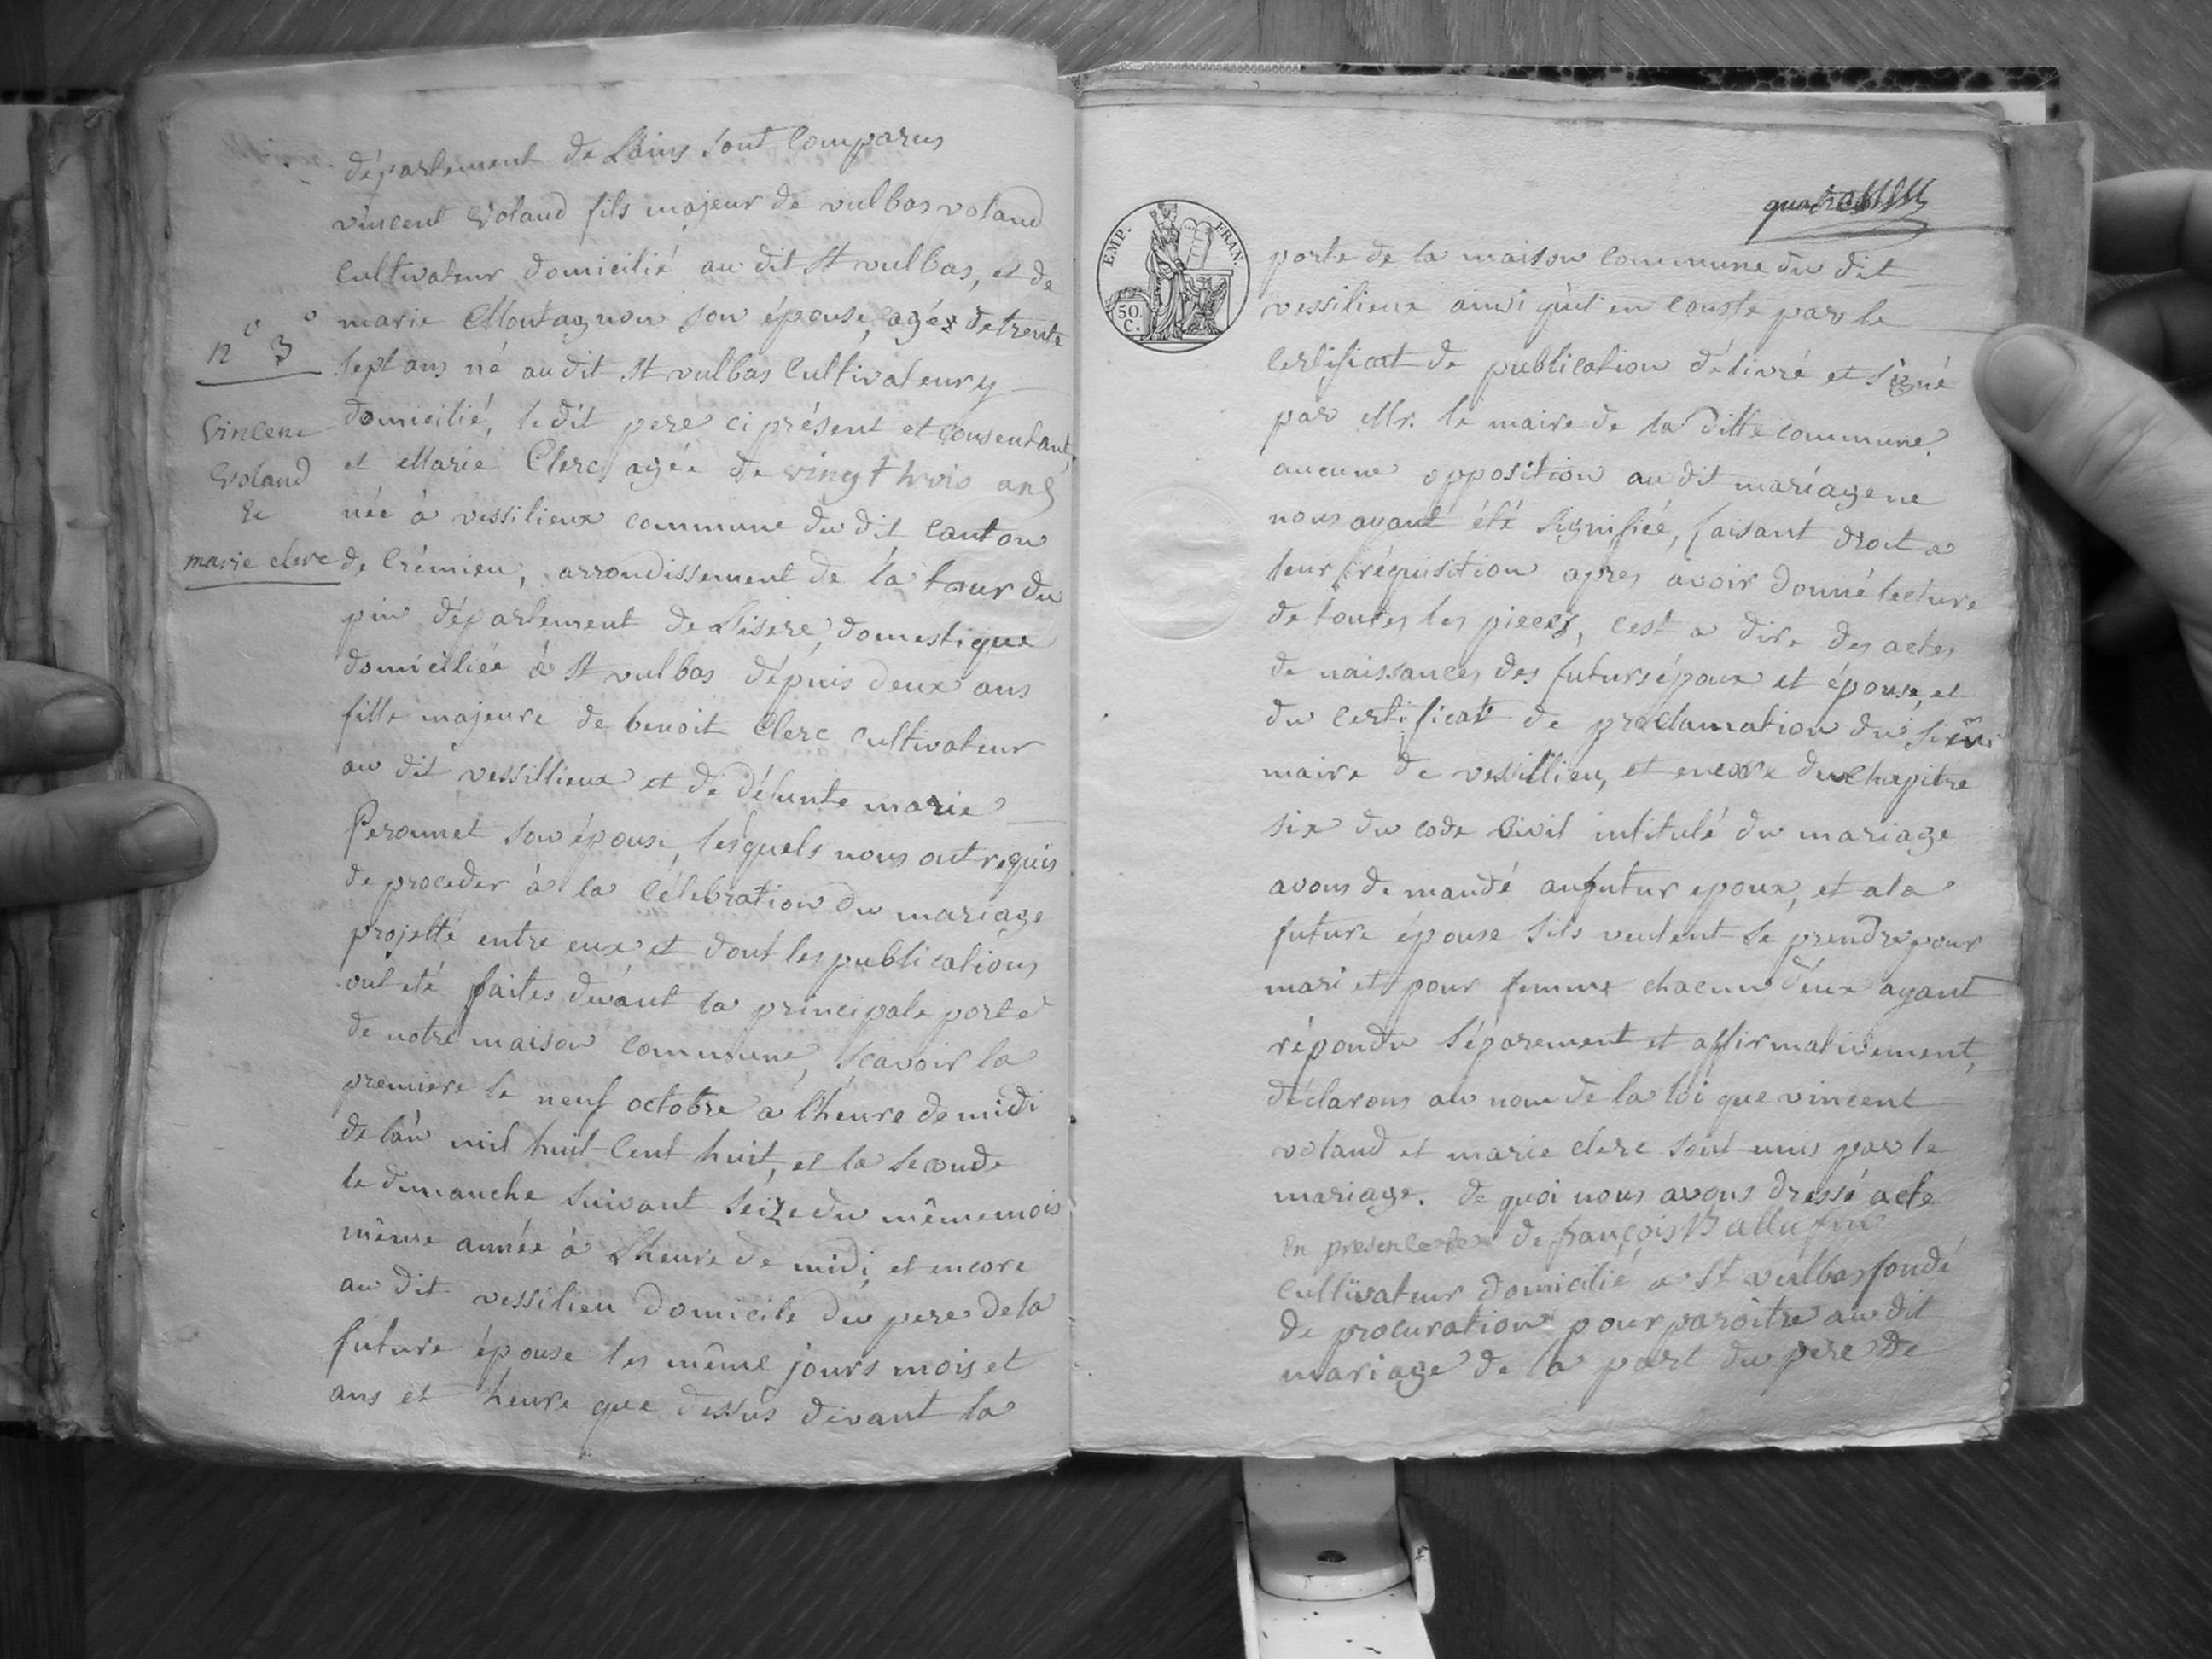 département de Lains sont Comparus
vincent Voland fils majeur de vulbas voland
cultivateur domicilié au dit St vulbas, et de
marie Montagnon son épouse, agé de trente
sept ans né au dit St vulbas Cultivateur y
domicilié, le dit pere ci présent et consentant,
et Marie Clerc agée de vingt trois ans
née à vessilieux commune du dit canton
de Crémieu, arrondissement de la tour du
pin département de Lisere, domestique
domiciliée à St vulbas dépuis deux ans
fille majeure de benoit Clerc cultivateur
au dit vessillieux et de défunte marie
Peronnet son épouse, lesquels nous ont requis
de proceder à la célebration du mariage
projetté entre eux et dont les publications
ont eté faites devant la principale porte
de notre maison commune, scavoir la
premiere le neuf octobre a lheure de midi
de lan mil huit Cent huit, et la seconde
le dimanche suivant seize du même mois
même année à Lheure de midi, et encore
au dit vessilieu domicile du pere de la
future épouse les même jours mois et
ans et heure que dessus devant la
n° 3°
Vincent
Voland
&
marie clerc
EMP. FRAN.
50 C.
porte de la maison commune du dit
vessilieux ainsi quil en conste par le
certificat de publication délivré et signé
par Mr. le maire de la ditte commune.
aucune opposition au dit mariage ne
nous ayant été signifiée, faisant droit a
leur réquisition apres avoir donné lecture
de toutes les pieces, cest a dire des actes
de naissances des futurs époux et épouse, et
du certificat de proclamation du
maire de vessillieu, et encore du chapitre
six du code Civil intitulé du mariage
avons demandé au futur epoux, et a la
future épouse sils veulent se prendre pour
mari et pour femme chacun deux ayant
répondu séparement et affirmativement,
déclarons au nom de la loi que vincent
voland et marie clerc sont unis par le
mariage. de quoi nous avons dressé acte
en presence de françois
Cultivateur domicilié a St vulbas fondé
de procuration pour paroitre au dit
mariage de la part du pere de